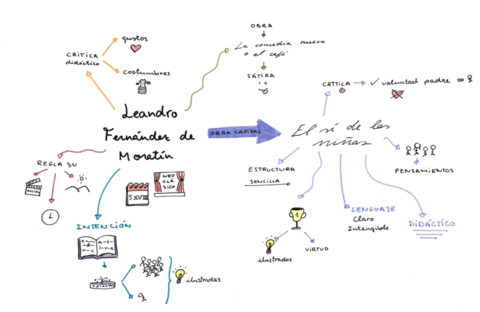 OBRA
La comedia nueva
o el café
SÁTIRA
CRÍTICA
didáctico
gustos
costumbres
Leandro
Fernández de
Moratín
OBRA CAPITAL
El sí de las
niñas
CRÍTICA
voluntad padres
PENSAMIENTOS
ESTRUCTURA
SENCILLA
1
ilustrados
VIRTUD
LENGUAJE
Claro
Inteligible
DIDÁCTICO
REGLA 3U
S.XVIII
NEO
CLÁ
SICO
INTENCIÓN
ilustrados